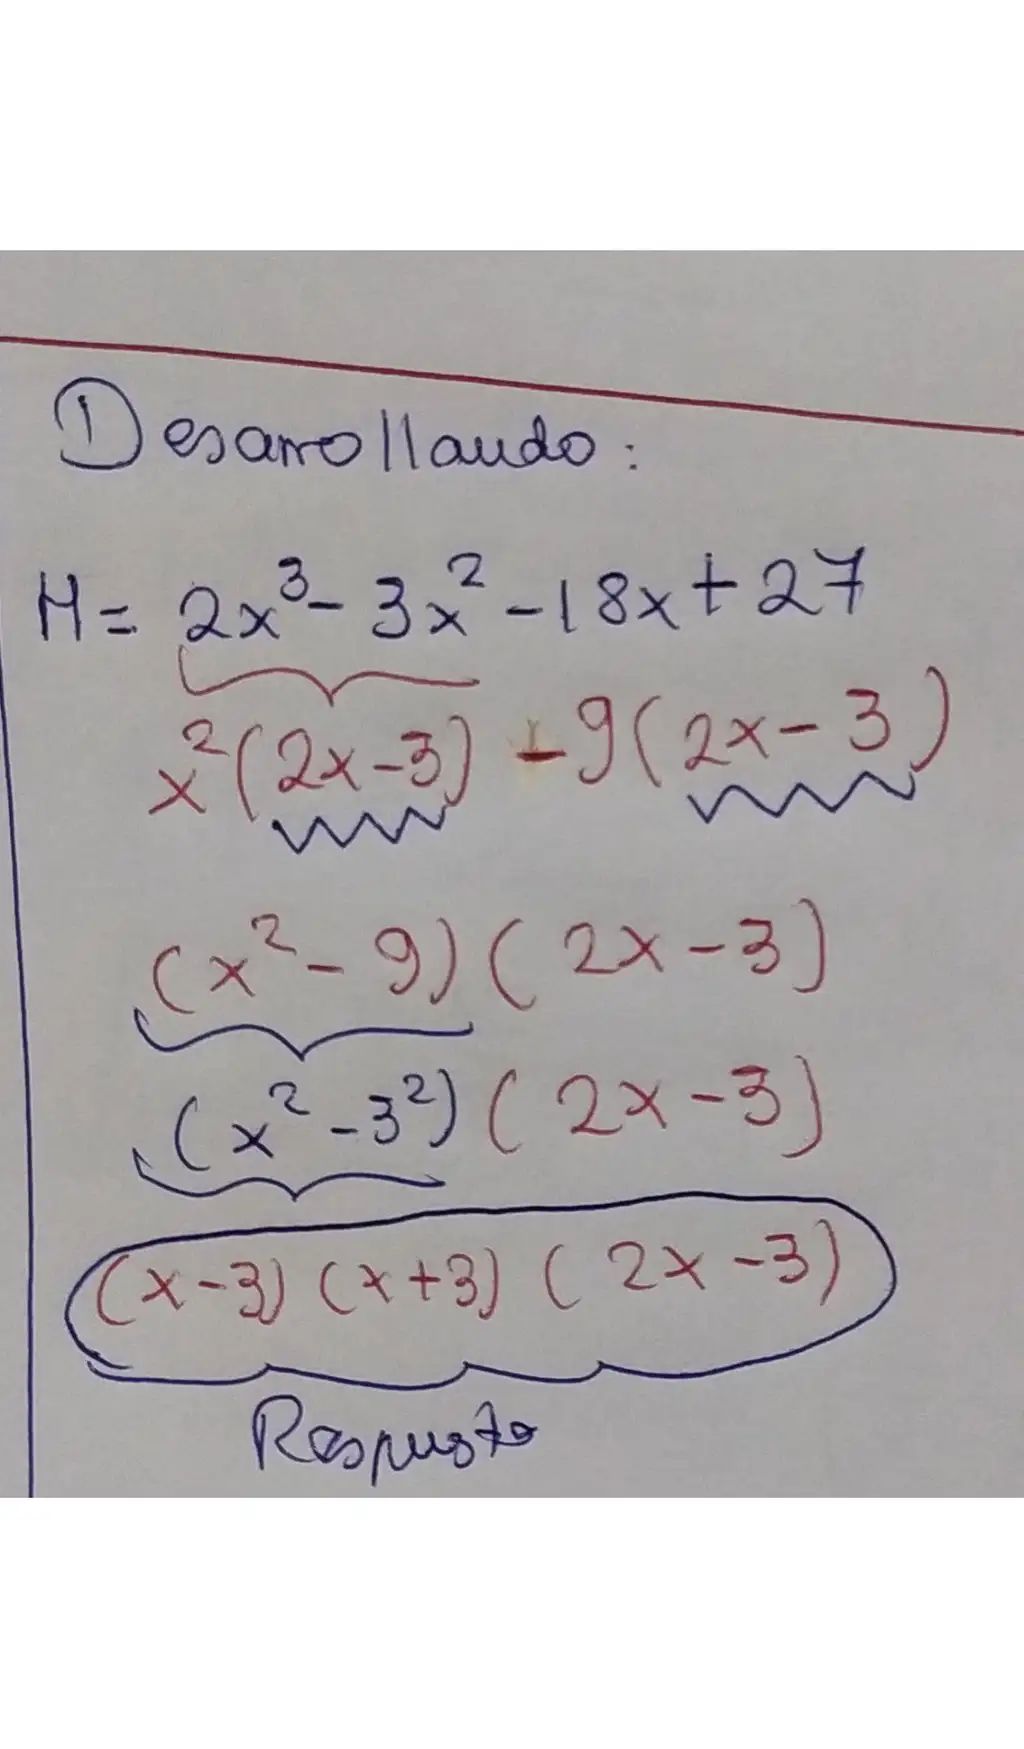 Desarrollando:
H= 2x³- 3x² -18x + 27
x²(2x-3) -9(2x-3)
(x²- 9)(2x-3)
(x² -3²)(2x-3)
(x-3)(x+3)(2x-3)
Respuesta